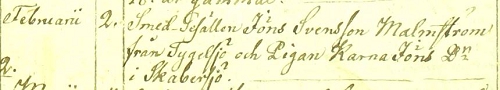 Februarii 2. Smed-Gesällen Jöns Svensson Malmström
från Tygelsjö och Pigan Karna Jöns Dr
2. i Skabersjö.